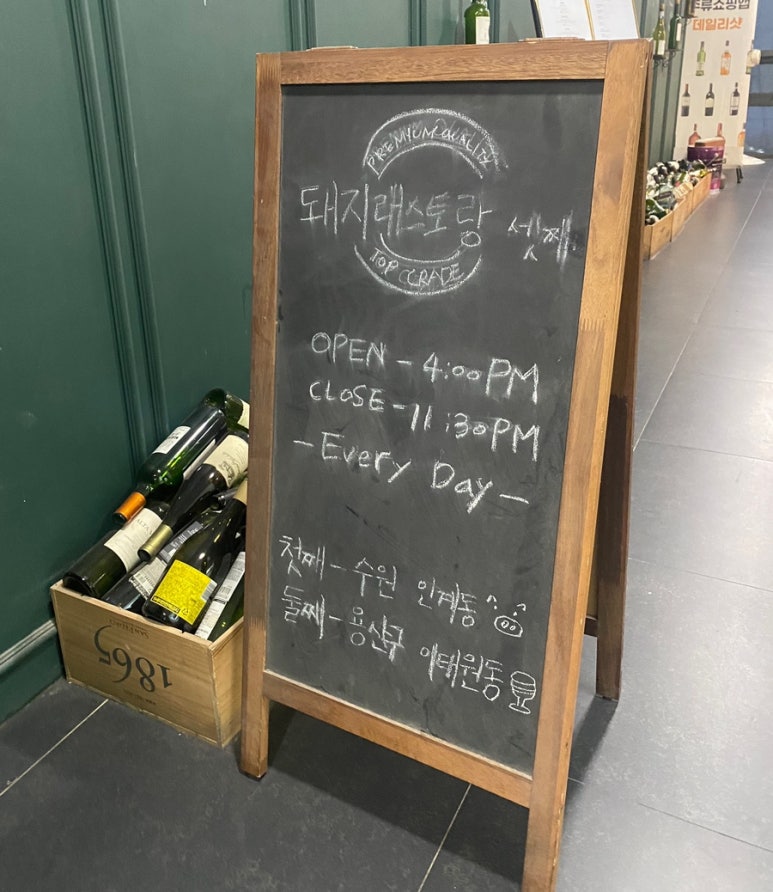 주류쇼핑앱
데일리샷
PREMIUM QUALITY
돼지래스토랑 셋째
TOP CGRADE
OPEN - 4:00 PM
CLOSE - 11:30 PM
- Every Day -
첫째 - 수원 인계동
둘째 - 용산구 이태원동
1865